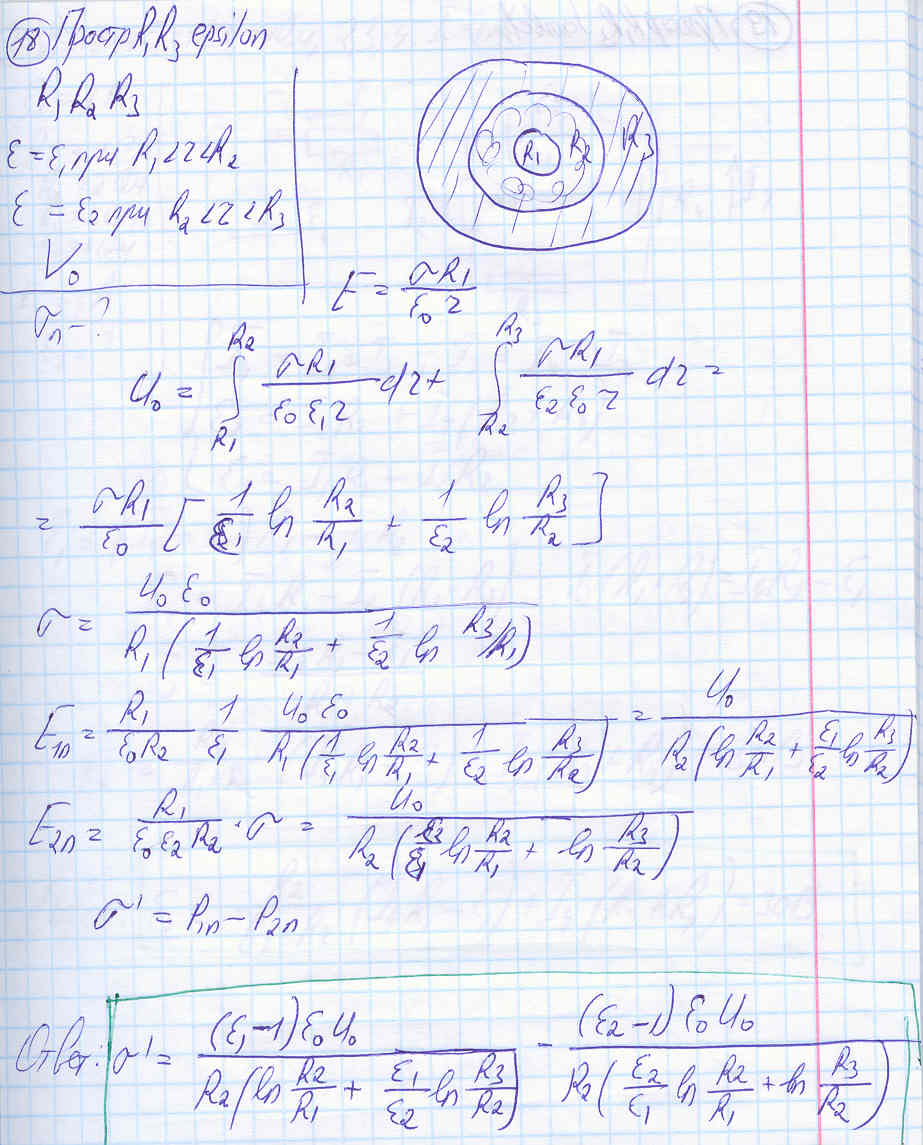 18 Простр R₁ R₃ epsilon
R₁ R₂ R₃
ε = ε₁ при R₁<r<R₂
ε = ε₂ при R₂<r<R₃
V₀
σₙ - ?
R₁ R₂ R₃
E = σR₁/(ε₀ r)
U₀ = ∫_{R₁}^{R₂} σR₁/(ε₀ ε₁ r) dr + ∫_{R₂}^{R₃} σR₁/(ε₂ ε₀ r) dr =
= σR₁/ε₀ [1/ε₁ ln R₂/R₁ + 1/ε₂ ln R₃/R₂]
σ = U₀ ε₀/(R₁ (1/ε₁ ln R₂/R₁ + 1/ε₂ ln R₃/R₁))
E₁ₙ = R₁/(ε₀R₂) 1/ε₁ U₀ ε₀/(R₁ (1/ε₁ ln R₂/R₁ + 1/ε₂ ln R₃/R₂)) = U₀/(R₂ (ln R₂/R₁ + ε₁/ε₂ ln R₃/R₂))
E₂ₙ = R₁/(ε₀ε₂R₂) · σ = U₀/(R₂ (ε₂/ε₁ ln R₂/R₁ + ln R₃/R₂))
σ' = P₁ₙ - P₂ₙ
Ответ: σ' = (ε₁-1) ε₀ U₀/(R₂ (ln R₂/R₁ + ε₁/ε₂ ln R₃/R₂)) - (ε₂-1) ε₀ U₀/(R₂ (ε₂/ε₁ ln R₂/R₁ + ln R₃/R₂))